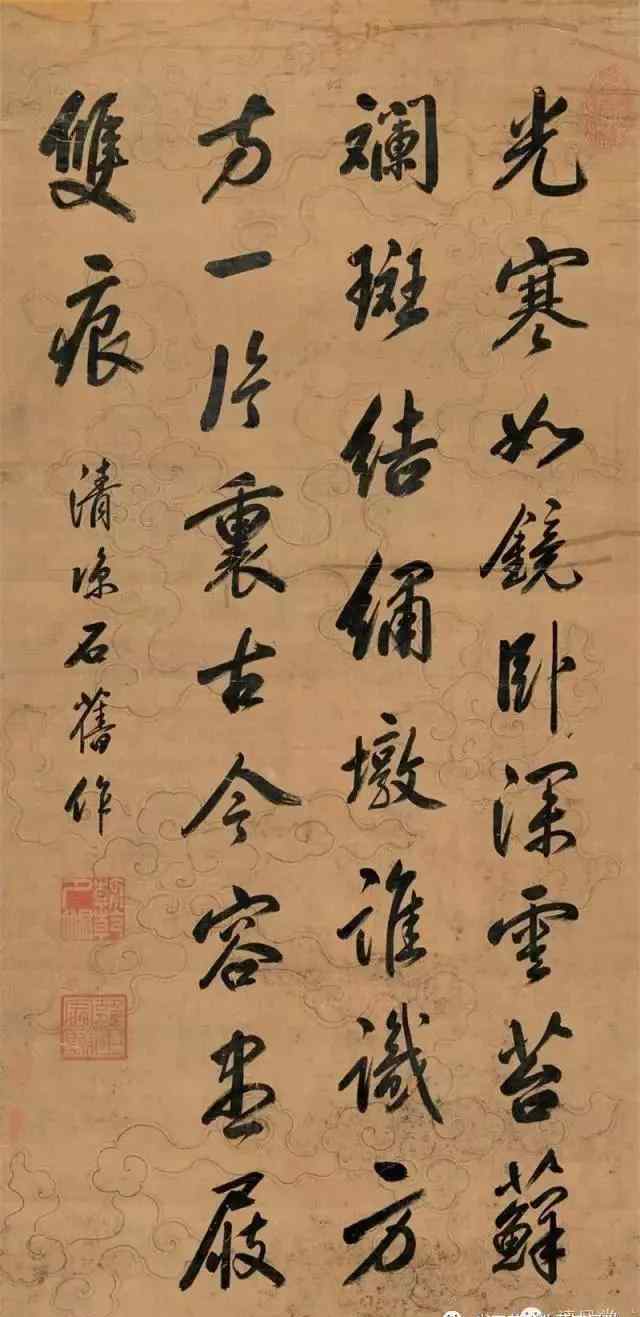 光寒如鏡卧深雲苔蘚
斕斑結繡墩誰識方
方一片裏古今容盡屐
雙痕
清凉石舊作